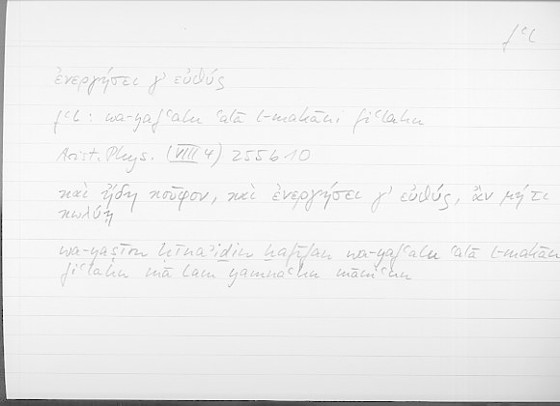 fʿl
ἐνεργήσει γ' εὐθύς
fʿl : wa-yafʿalu ʿalā l-makāni fiʿlahu
Arist. Phys. (VIII 4) 255b10
καὶ ἤδη κοῦφον, καὶ ἐνεργήσει γ' εὐθύς, ἂν μή τι
κωλύῃ
wa-yaṣīru ḥīnaʾiḏin ḫafīfan wa-yafʿalu ʿalā l-makāni
fiʿlahu mā lam yamnaʿhu māniʿun